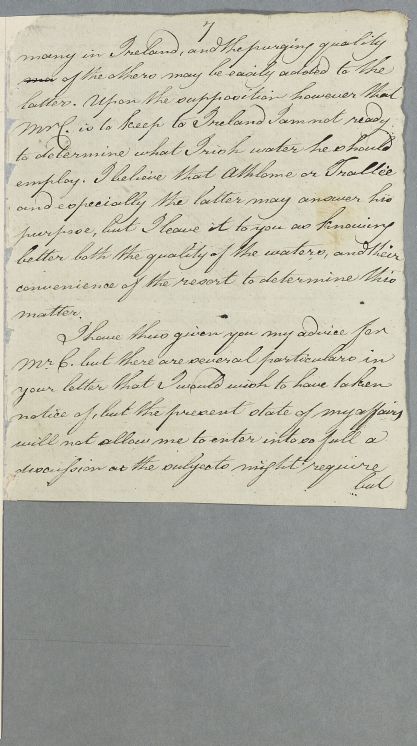 7
many in Ireland, and the purging quality
of the others may be easily added to the
latter. Upon the supposition however that
Mr. C. is to keep to Ireland I am not ready
to determine what Irish water he should
employ. I believe that Athlome or Trallee
and especially the latter may answer his
purpose, but I leave it to you as knowing
better both the quality of the waters, and their
convenience of the resort to determine this
matter.
I have thus given you my advice for
Mr. C. but there are several particulars in
your letter that I would wish to have taken
notice of, but the present state of my affairs
will not allow me to enter into so full a
discussion as the subjects might require
but